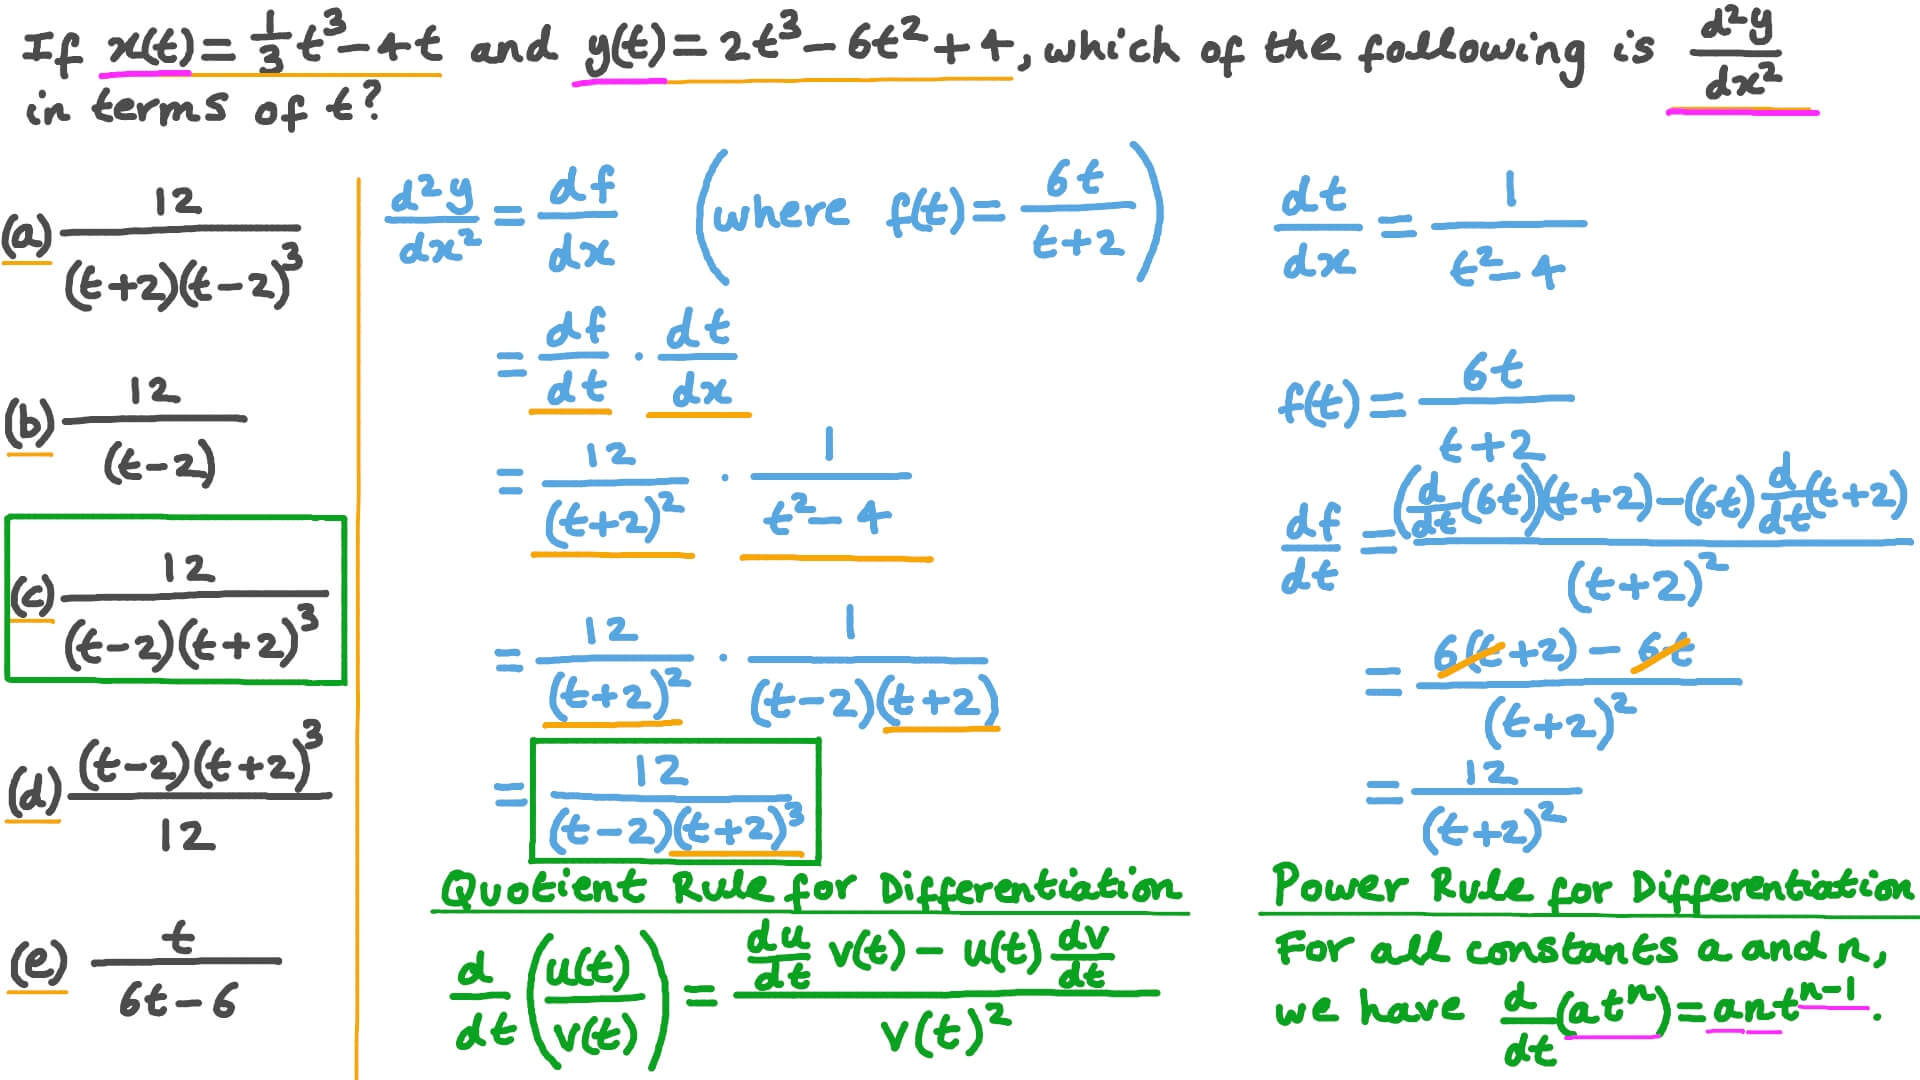 If x(t) = 1/3 t³ − 4t and y(t) = 2t³ − 6t² + 4, which of the following is d²y/dx²
in terms of t?
(a) 12/((t+2)(t−2)³)
(b) 12/(t−2)
(c) 12/((t−2)(t+2)³)
(d) (t−2)(t+2)³/12
(e) t/(6t−6)
d²y/dx² = df/dx (where f(t) = 6t/(t+2))
= df/dt · dt/dx
= 12/(t+2)² · 1/(t²−4)
= 12/(t+2)² · 1/((t−2)(t+2))
= 12/((t−2)(t+2)³)
dt/dx = 1/(t²−4)
f(t) = 6t/(t+2)
df/dt = ((d/dt(6t))(t+2) − (6t) d/dt(t+2))/(t+2)²
= (6(t+2) − 6t)/(t+2)²
= 12/(t+2)²
Quotient Rule for Differentiation
d/dt (u(t)/v(t)) = (du/dt v(t) − u(t) dv/dt)/v(t)²
Power Rule for Differentiation
For all constants a and n,
we have d/dt (atⁿ) = antⁿ⁻¹.